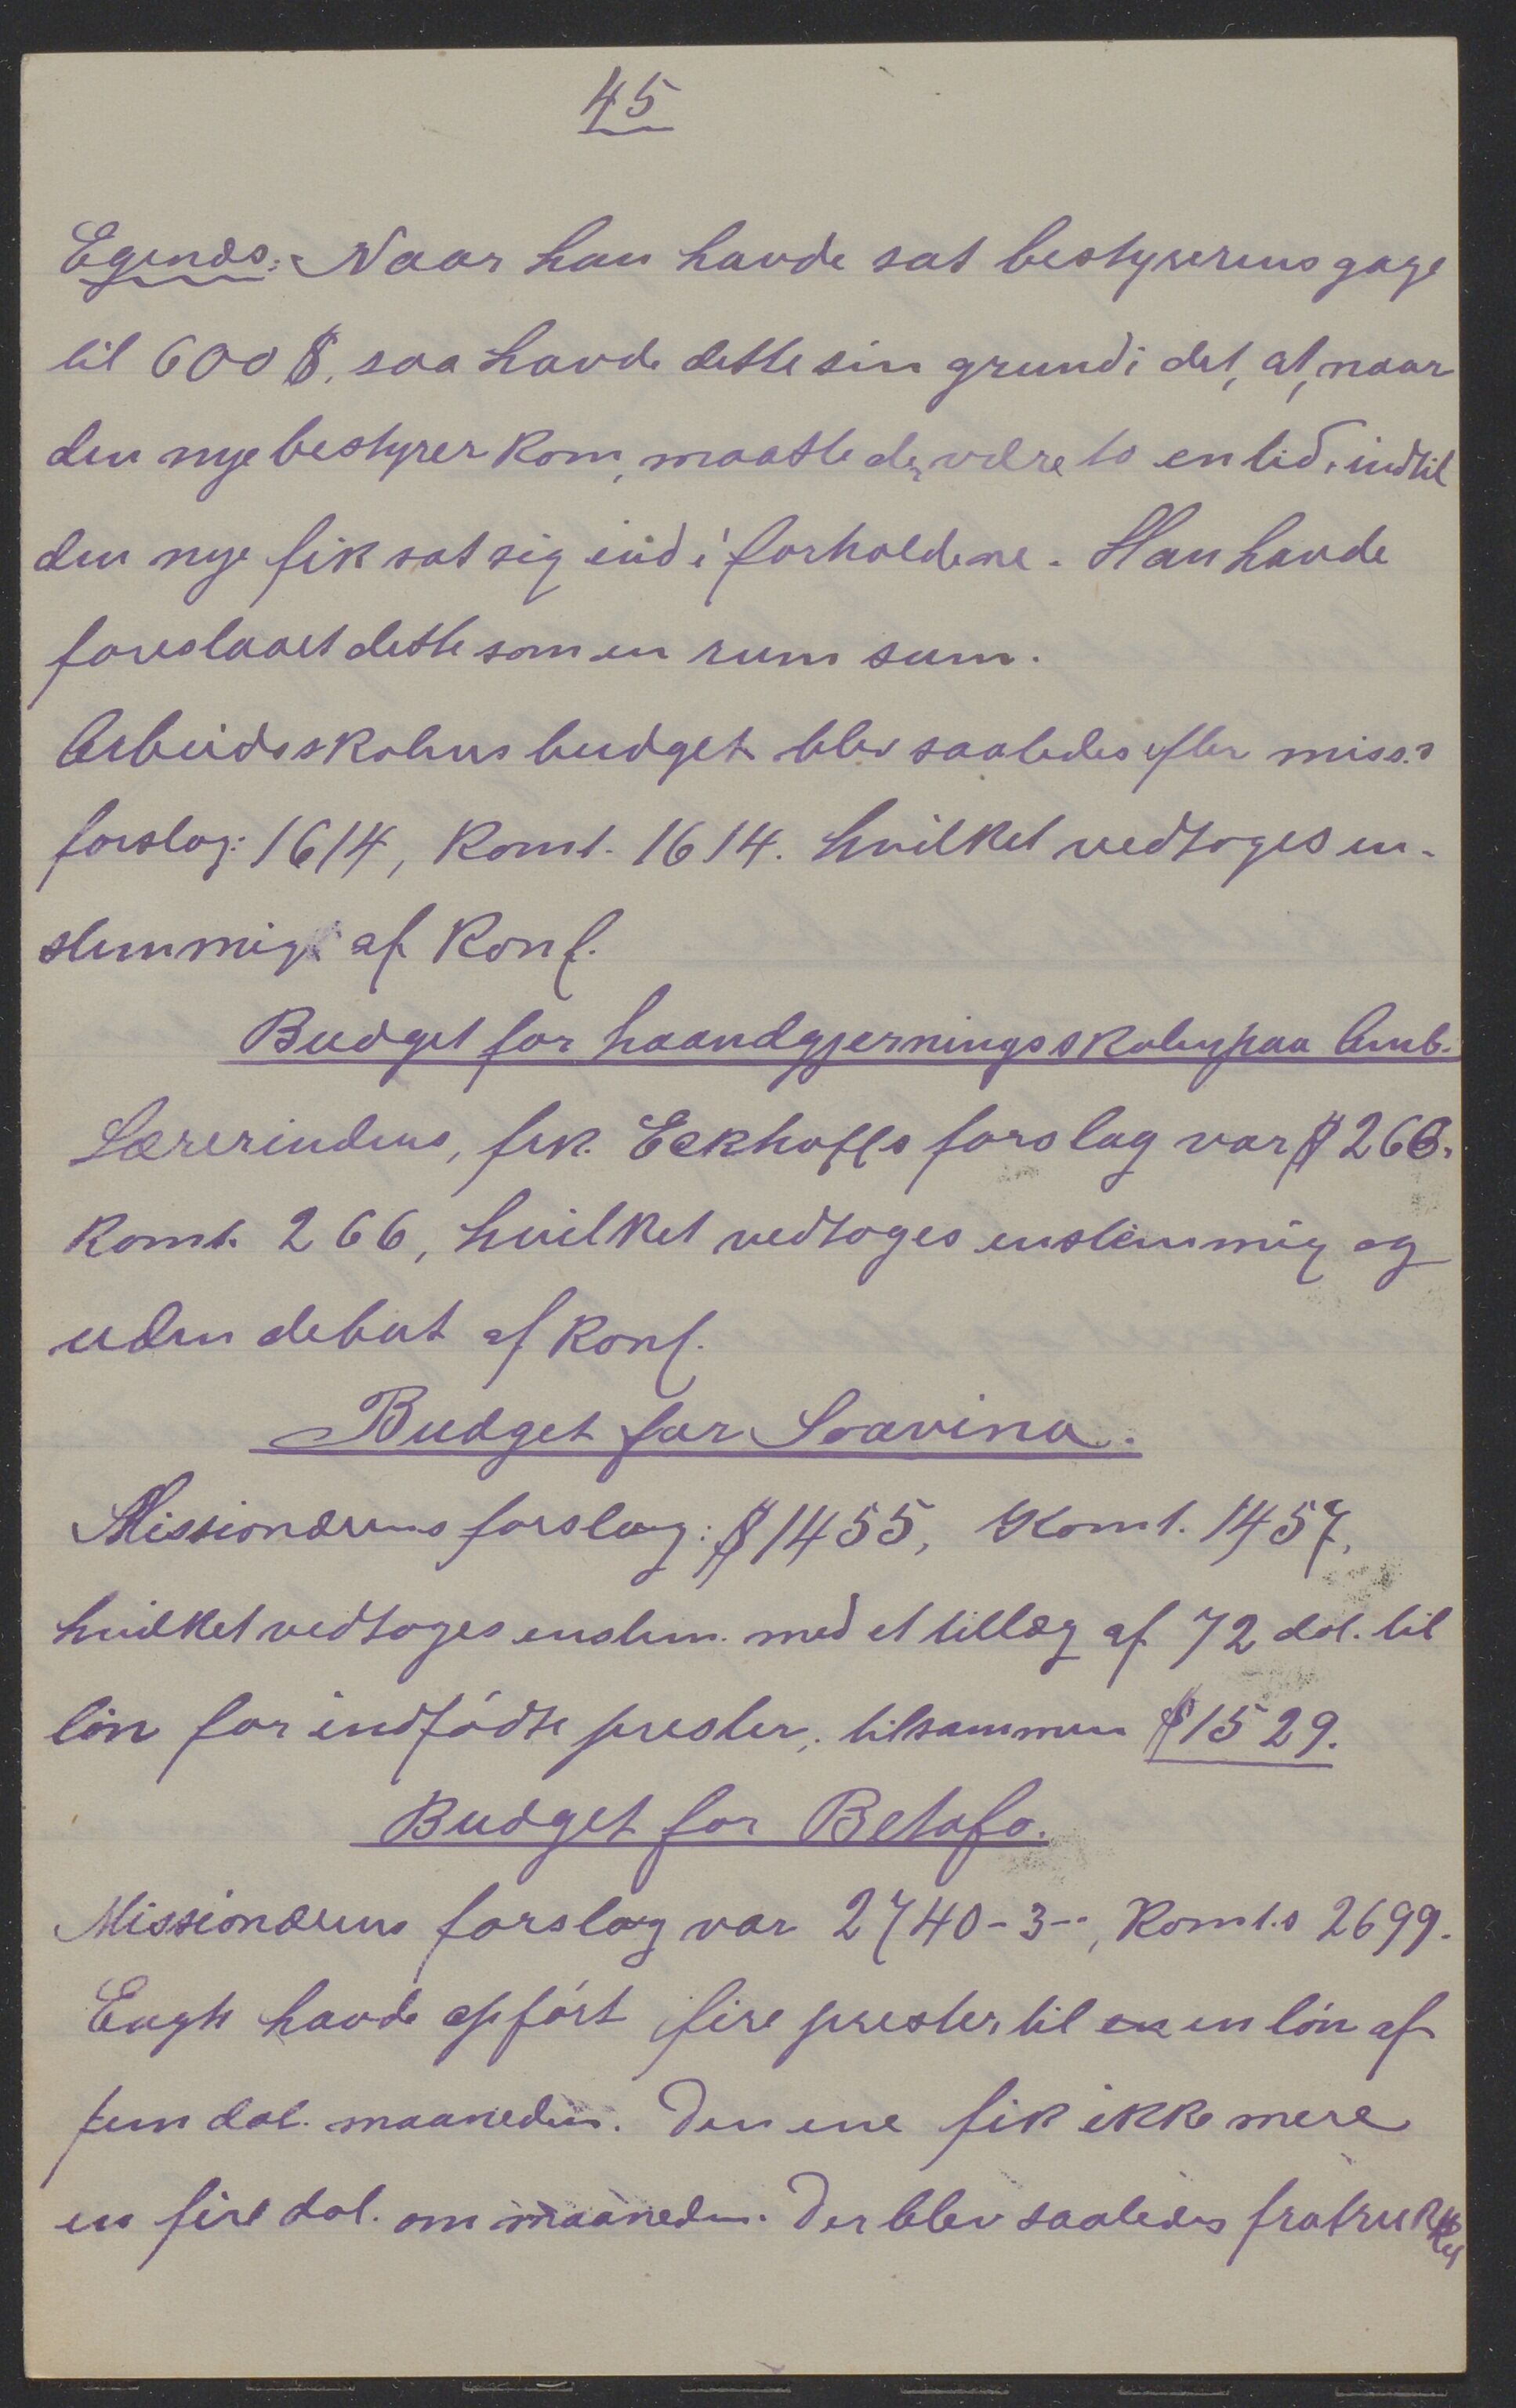 45
Egenæs: Naar han havde sat bestyrerens gage
til 600 $, saa havde dette sin grund i det, at, naar
den nye bestyrer kom, maatte der være to en tid, indtil
den nye fik sat sig ind i forholdene. Han havde
foreslaaet dette som en rum sum.
Arbeidsskolens budget blev saaledes efter miss.s
forslag: 1614, Komt. 1614. hvilket vedtoges en-
stemmig af Konf.
Budget for haandgjerningsskolen paa Amb.
Lærerindens, frk. Eckhoffs forslag var $ 266.
Komt. 266, hvilket vedtoges enstemmig og
uden debat af Konf.
Budget for Soavina.
Missionærens forslag: $ 1455, Komt. 1457,
hvilket vedtoges enstem. med et tillæg af 72 dol. til
løn for indfødte prester, tilsammen $ 1529.
Budget for Betafo.
Missionærens forslag var 2740-3-, Komt.s 2699.
Engh havde opført fire prester til en løn af
fem dol. maaneden. Den ene fik ikke mere
en fire dol. om maaneden. Der blev saaledes fratrukket